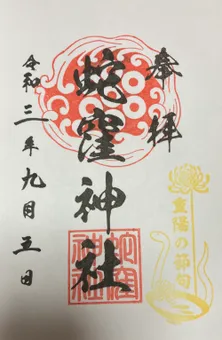 奉拝
蛇窪神社
蛇窪神社
重陽の節句
令和三年九月五日